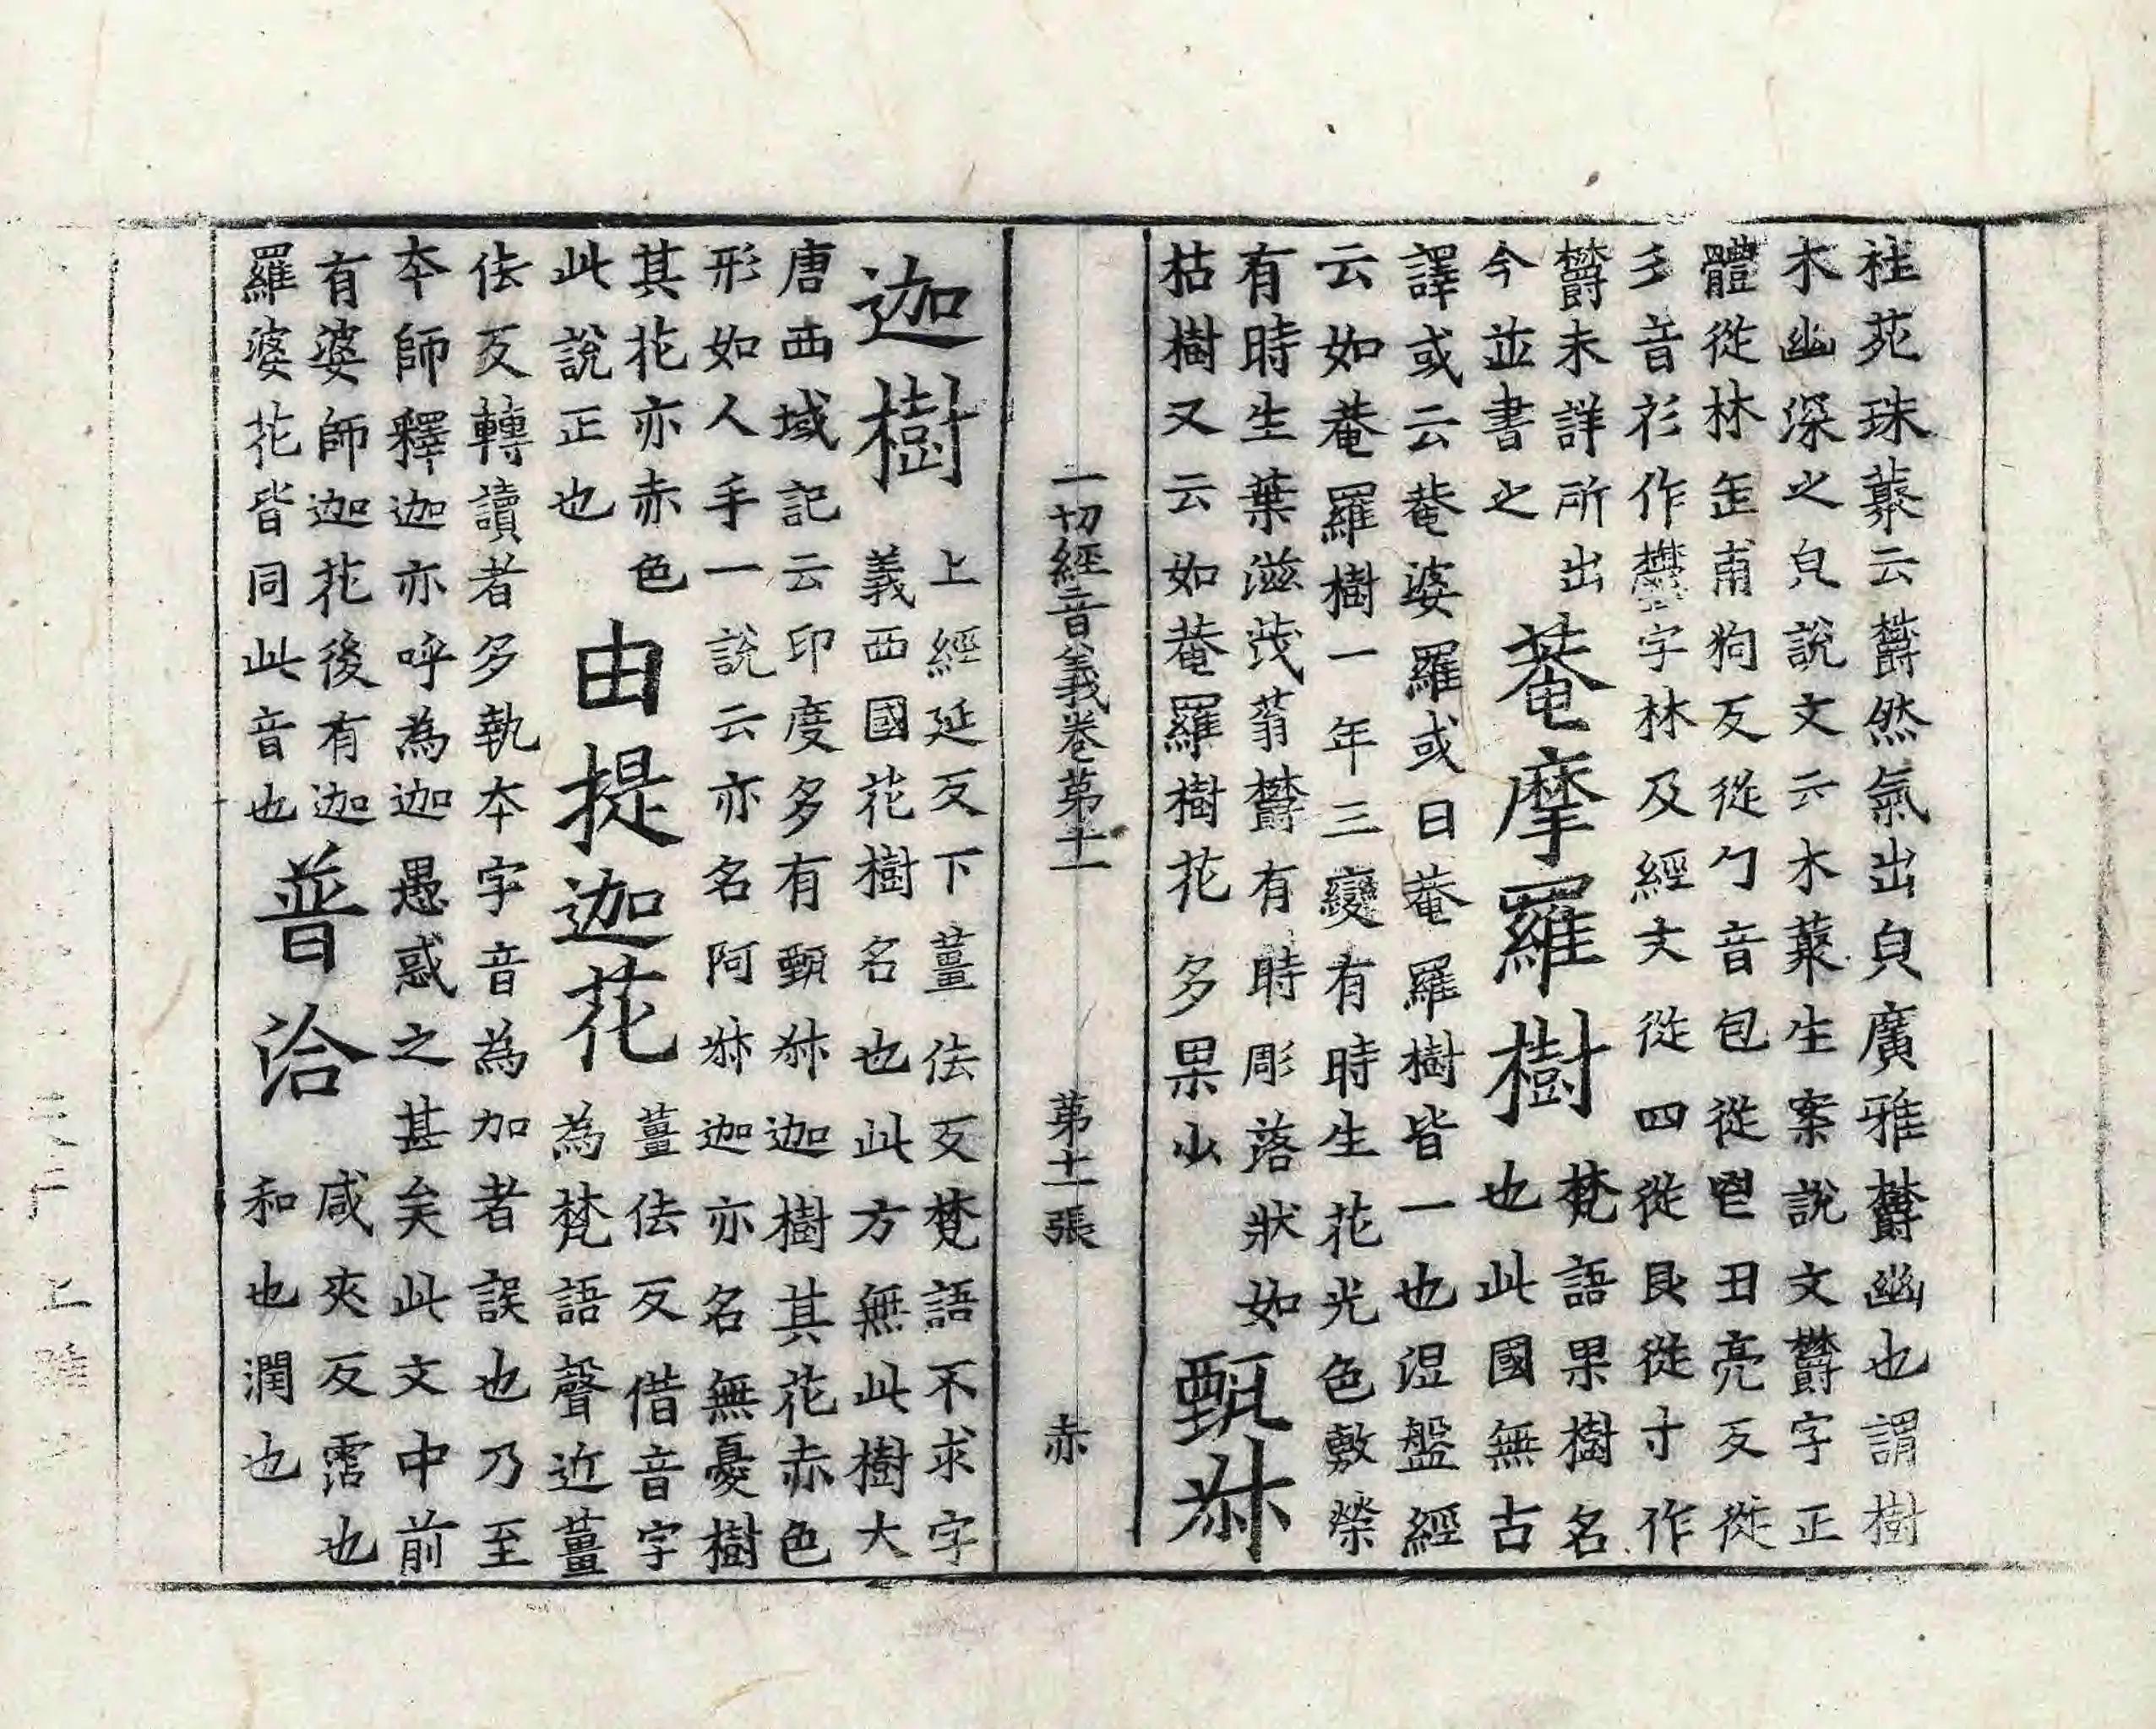 桂苑珠藂云欝然氣出皃廣雅欝幽也謂樹
木幽深之皃說文云木藂生案說文欝字正
體從林缶甫狗反從勹音包從鬯丑亮反從
彡音衫作鬱字林及經文從四從艮從寸作
欝未詳所出
今並書之
菴摩羅樹
梵語果樹名
也此國無古
譯或云菴婆羅或曰菴羅樹皆一也涅盤經
云如菴羅樹一年三變有時生花光色敷榮
有時生葉滋茂蓊欝有時彫落狀如
枯樹又云如菴羅樹花多果少
甄叔
一切經音義卷第十一 第十一張 赤
迦樹
上經延反下薑佉反梵語不求字
義西國花樹名也此方無此樹大
唐西域記云印度多有甄叔迦樹其花赤色
形如人手一說云亦名阿叔迦亦名無憂樹
其花亦赤色
此說正也
由提迦花
薑佉反借音字
為梵語聲近薑
佉反轉讀者多執本字音為加者誤也乃至
本師釋迦亦呼為迦愚惑之甚矣此文中前
有婆師迦花後有迦
羅婆花皆同此音也
普洽
咸夾反霑也
和也潤也